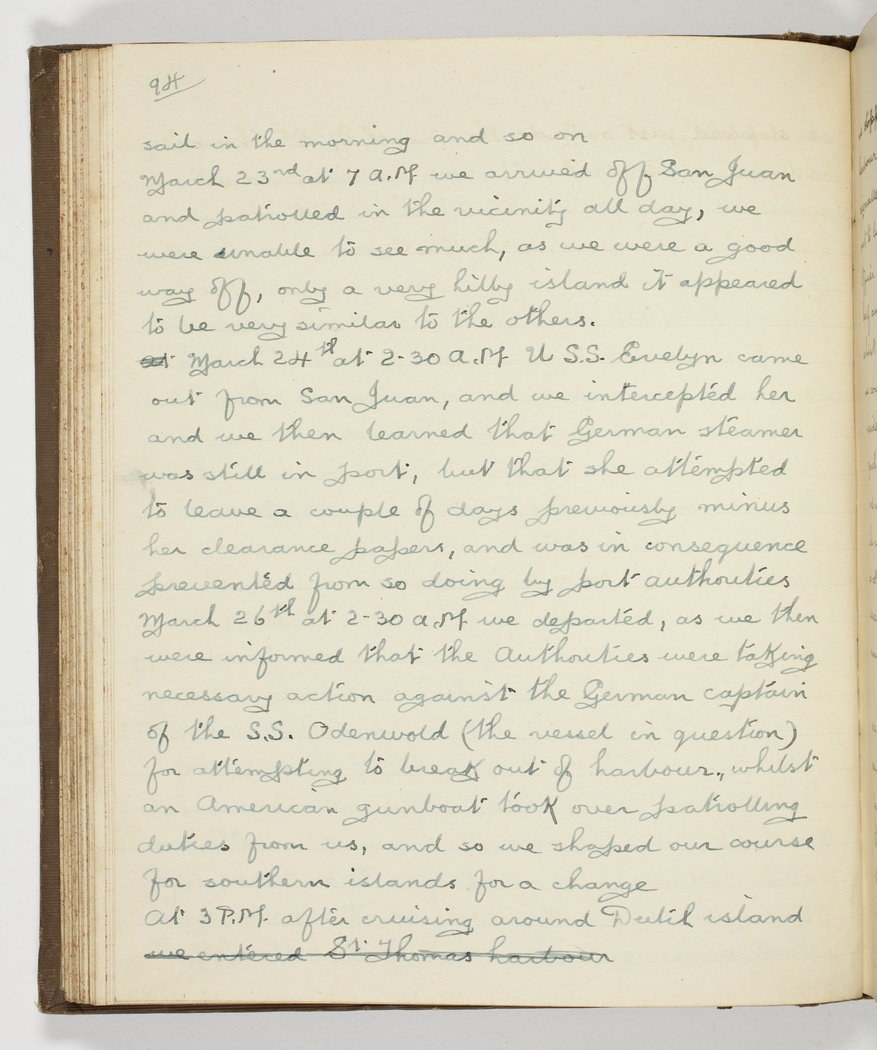 94
sail in the morning and so on
March 23rd at 7 A.M we arrived off San Juan
and patrolled in the vicinity all day, we
were unable to see much, as we were a good
way off, only a very hilly island it appeared
to be very similar to the others.
at March 24th at 2-30 A.M U S.S. Evelyn came
out from San Juan, and we intercepted her
and we then learned that German steamer
was still in port, but that she attempted
to leave a couple of days previously minus
her clearance papers, and was in consequence
prevented from so doing by port authorities
March 26th at 2-30 a.M we departed, as we then
were informed that the Authorities were taking
necessary action against the German captain
of the S.S. Odenwold (the vessel in question)
for attempting to break out of harbour., whilst
an American gunboat took over patrolling
duties from us, and so we shaped our course
for southern islands for a change
At 3 P.M. after cruising around Dutch island
we entered St Thomas harbour